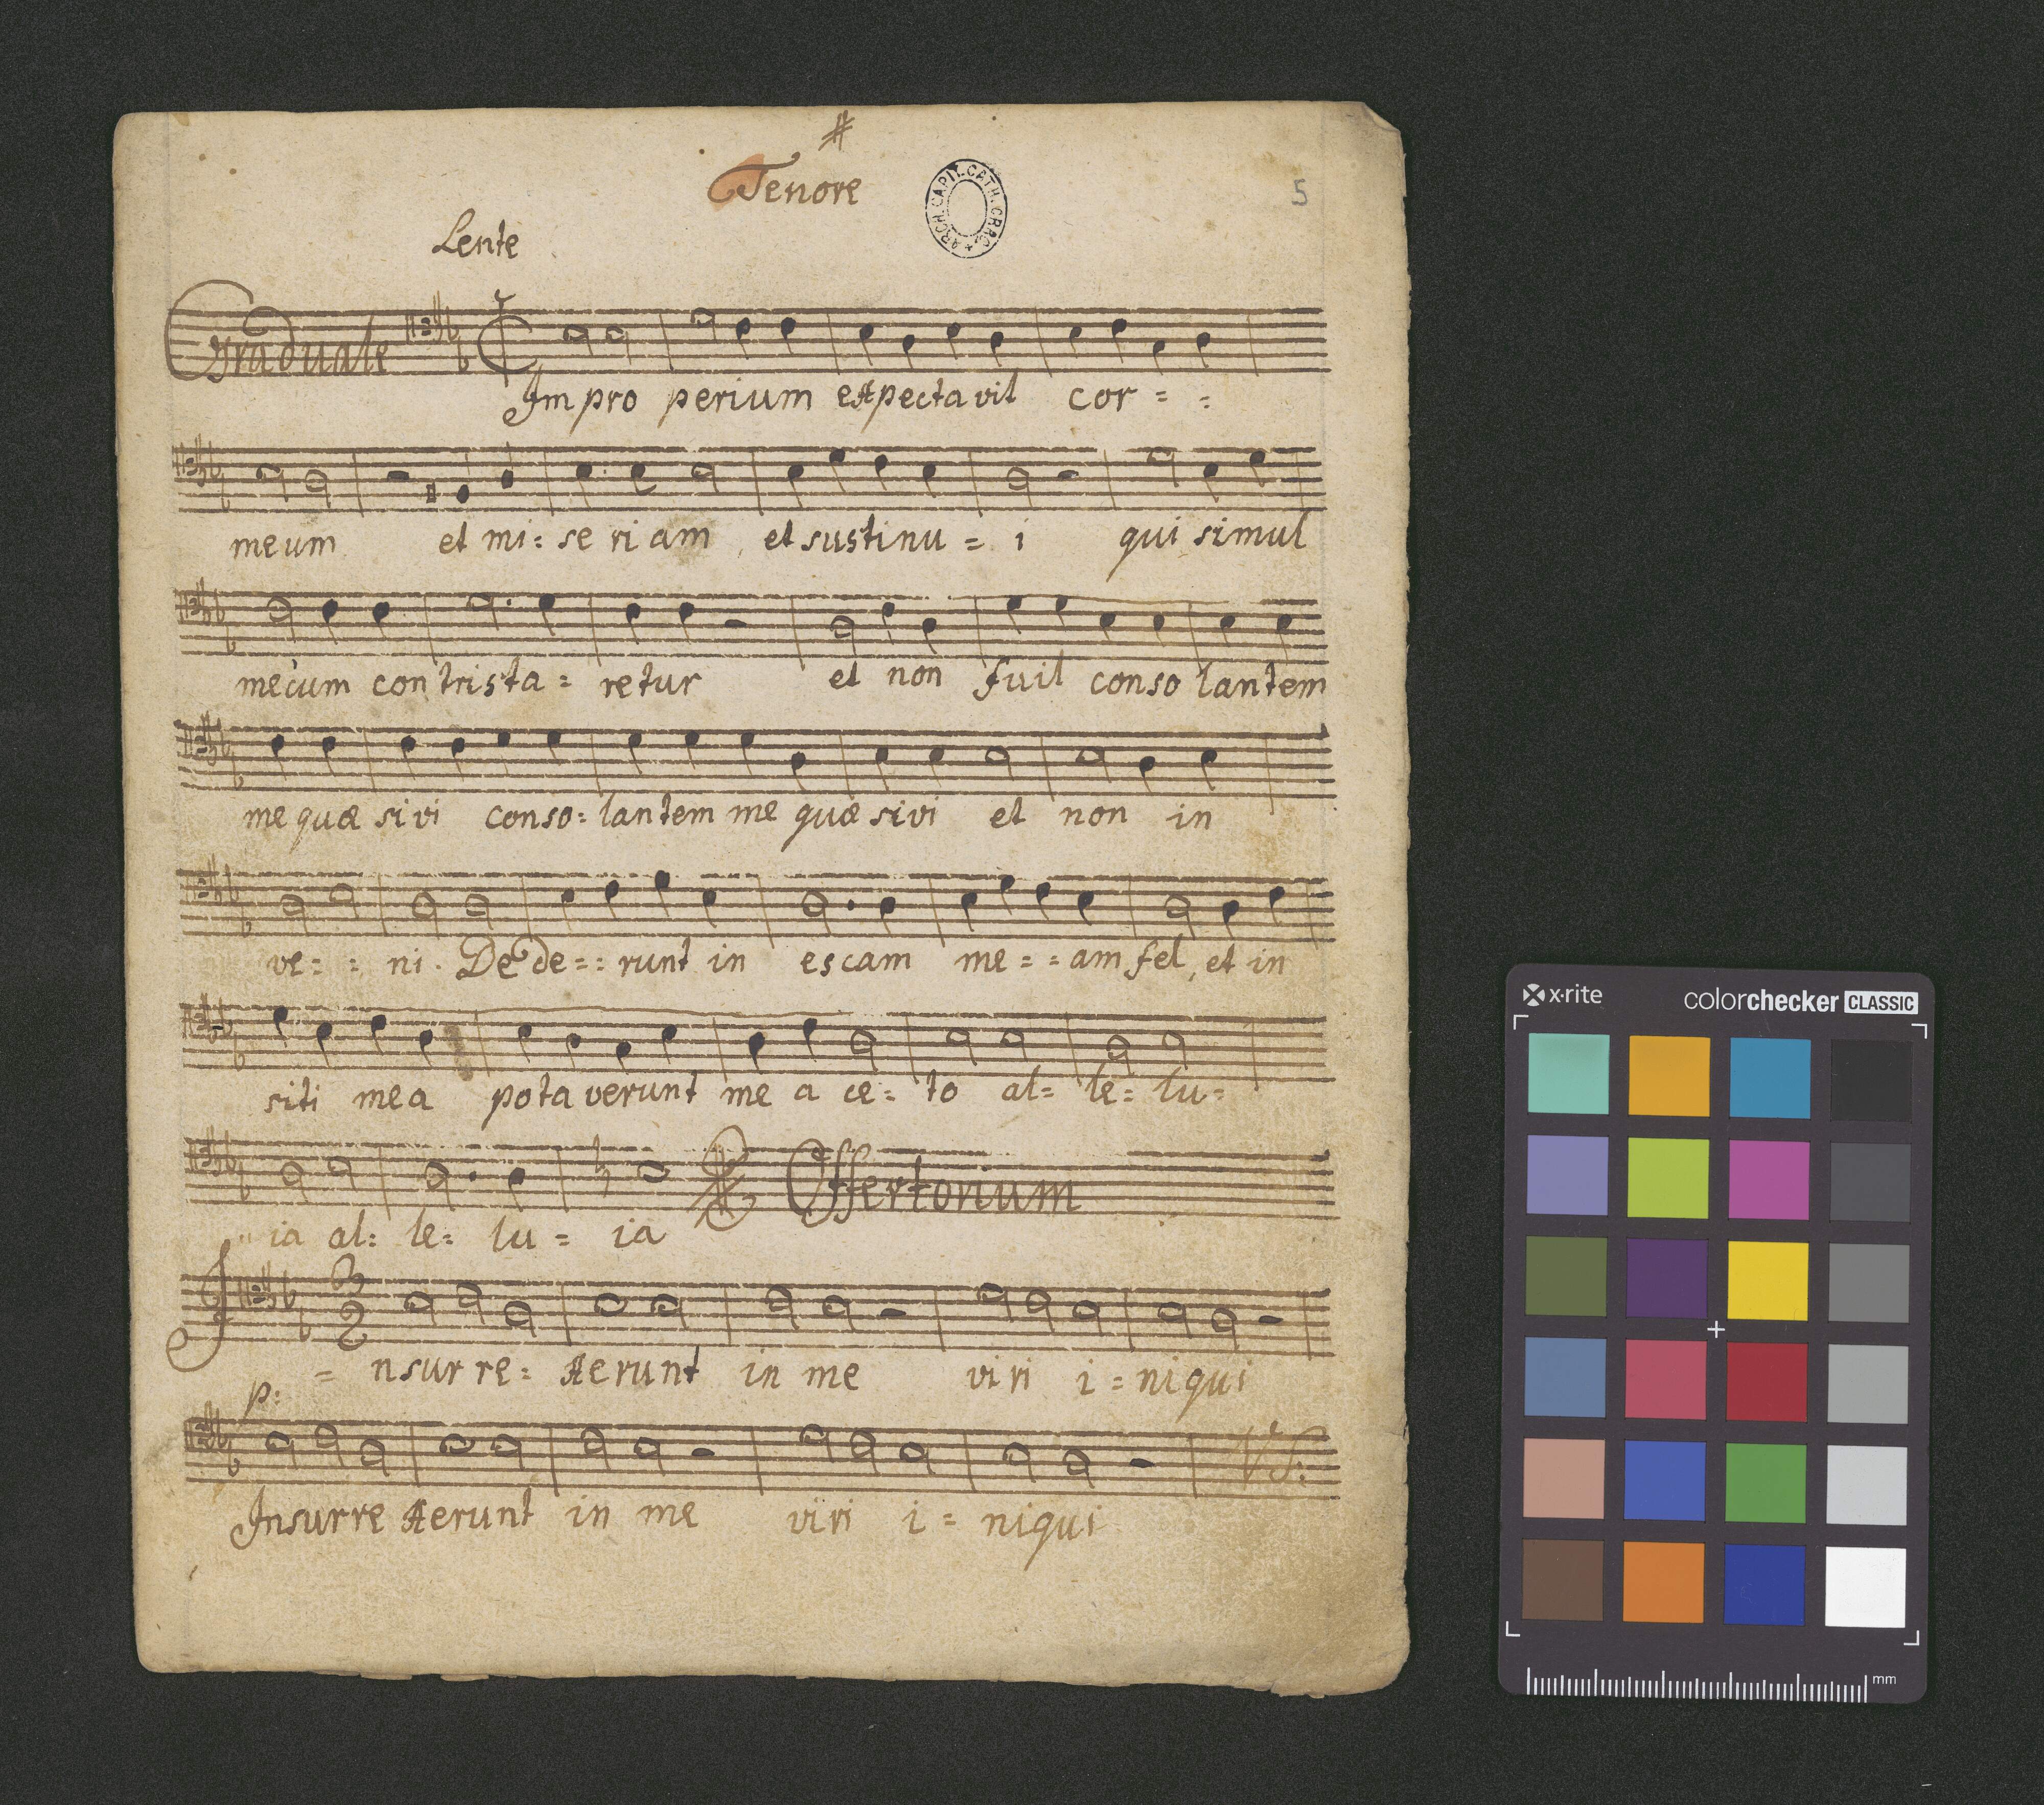 #
Tenore
ARCH. CAPIT. CATH. CRAC.
5
Lente
Graduale
Impro perium expectavit cor = =
meum et mi: se ri am, et sustinu = i qui simul
mecum con trista = retur et non fuit conso lantem
me quæ sivi conso: lantem me quæ sivi et non in
ve: = ni. De de = : runt in escam me = = am fel, et in
siti mea pota verunt me a ce: to al= le: lu=
ia al: le: lu = ia Offertorium
3
2
I = nsur re: xe runt in me vi ri i = niqui
p:
Insurre xerunt in me viri i = niqui
VS:
x·rite colorchecker CLASSIC
mm